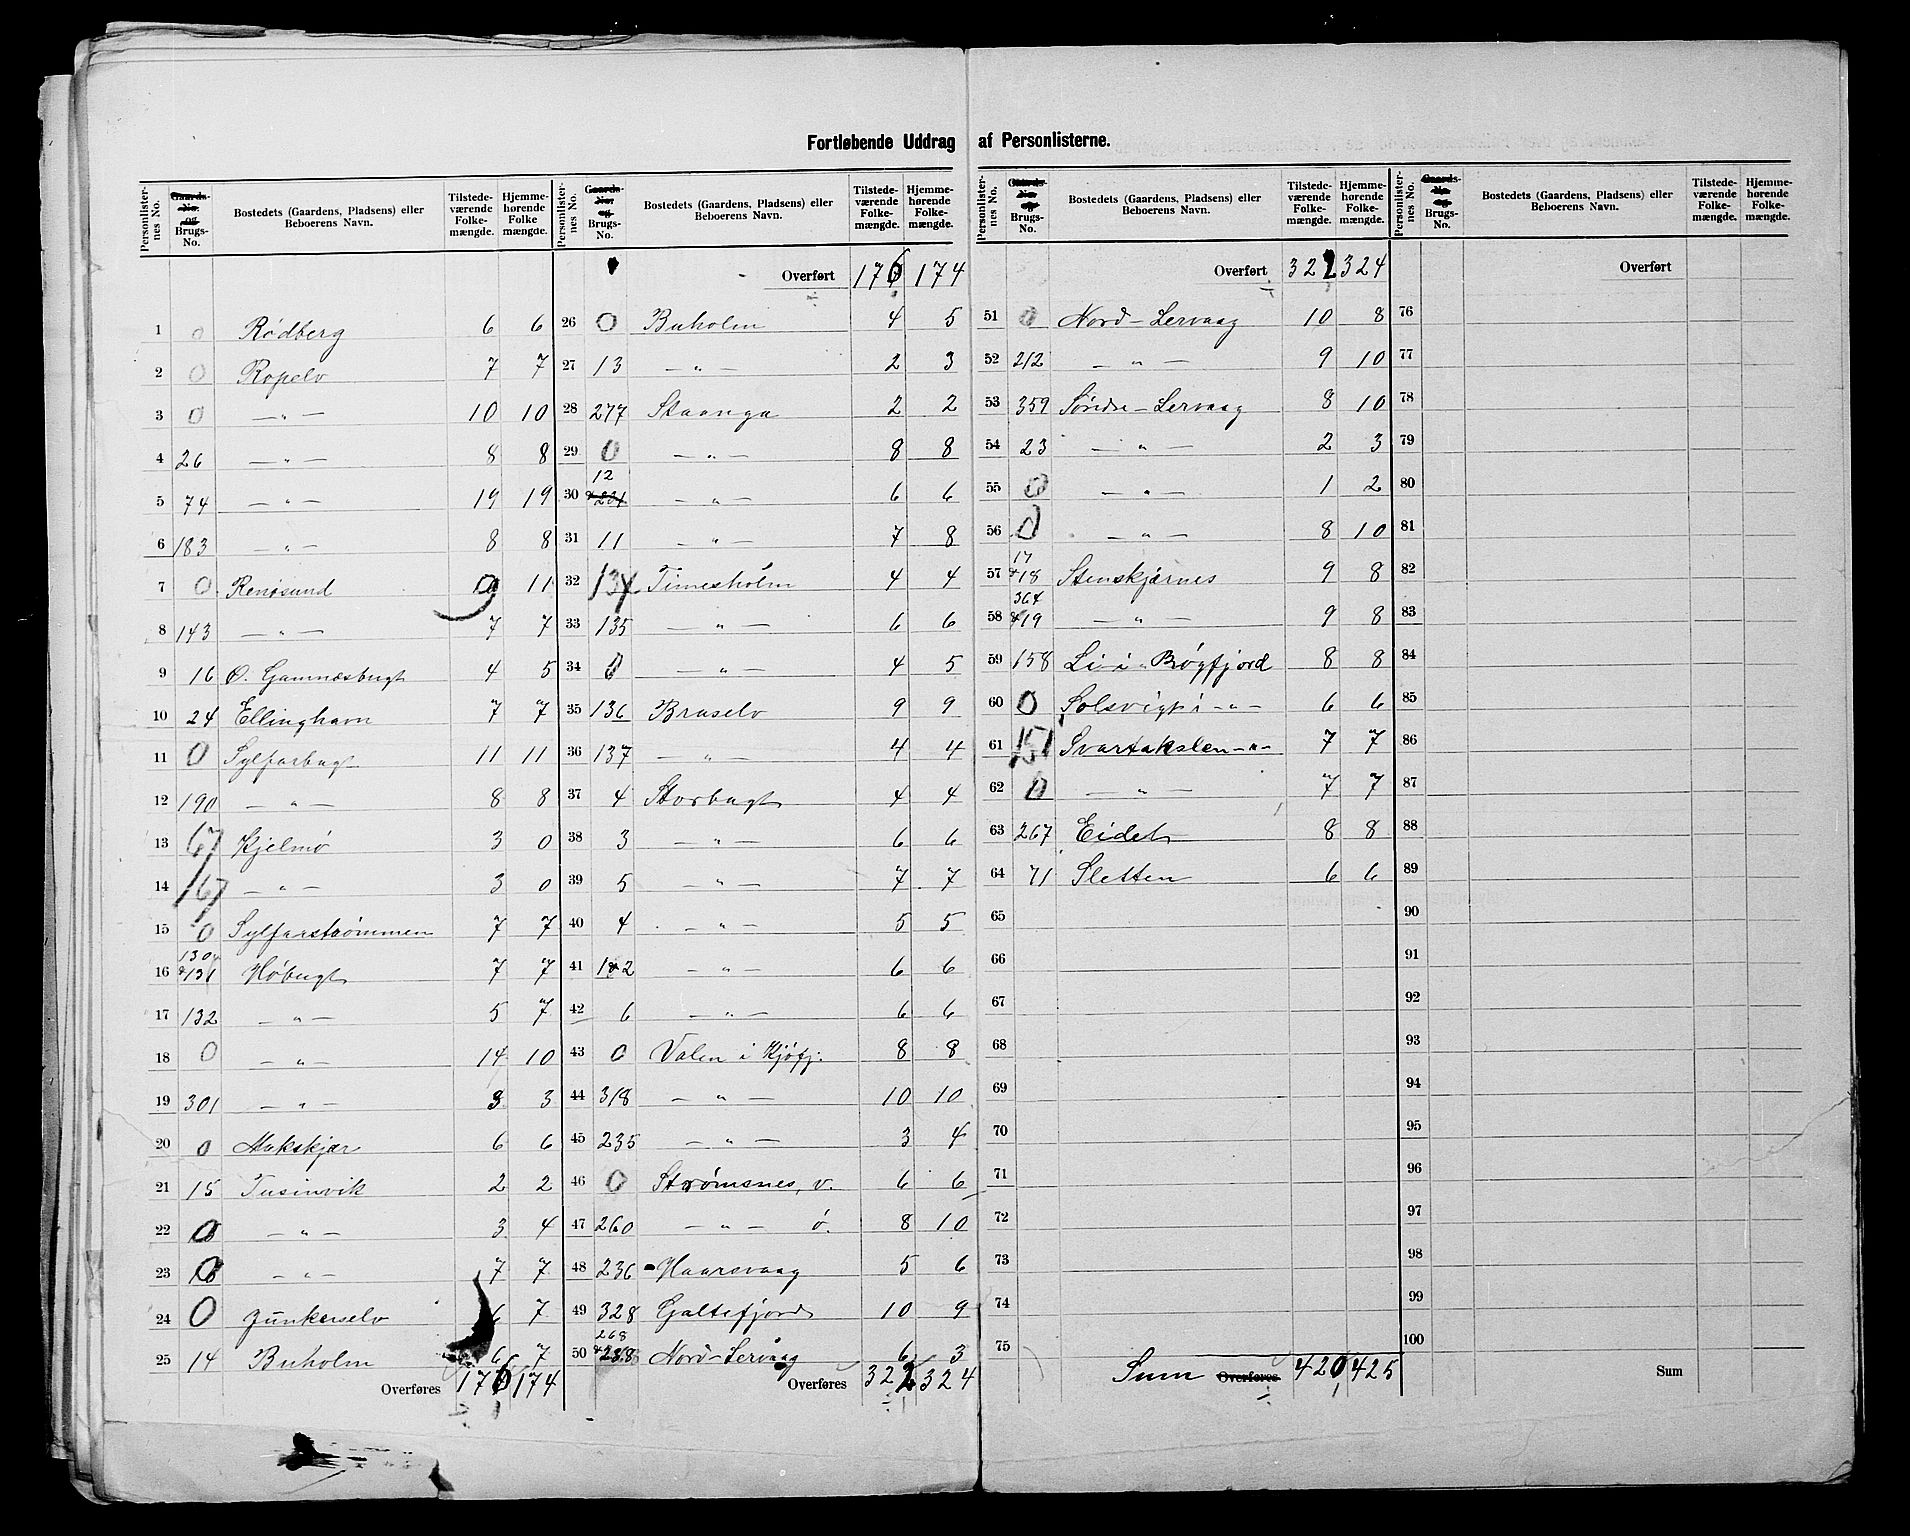 Fortløbende Uddrag af Personlisterne.
Personlister-nes No. Gaards-No. og Brugs-No. Bostedets (Gaardens, Pladsens) eller Beboerens Navn. Tilstede-værende Folke-mængde. Hjemme-hørende Folke mængde.
1 0 Rødberg 6 6
2 0 Ropelv 7 7
3 0 — " — 10 10
4 26 — " — 8 8
5 74 — " — 19 19
6 183 — " — 8 8
7 0 Renøsund 9 11
8 143 — " — 7 7
9 16 Ø. Gamnæsbugt 4 5
10 24 Ellinghavn 7 7
11 0 Sylfarbugt 11 11
12 190 — " — 8 8
13 67 Kjelmø 3 0
14 167 — " — 3 0
15 0 Sylfarstrømmen 7 7
16 130 & 131 Høbugt 7 7
17 132 — " — 5 7
18 0 — " — 14 10
19 301 — " — 3 3
20 0 Aukskjær 6 6
21 15 Tusinvik 2 2
22 0 — " — 3 4
23 0 — " — 7 7
24 0 Junkerselv 6 7
25 14 Buholm 6 7
Overføres 176 174
Personlister-nes No. Gaards-No. og Brugs-No. Bostedets (Gaardens, Pladsens) eller Beboerens Navn. Tilstede-værende Folke-mængde. Hjemme-hørende Folke mængde.
Overført 176 174
26 0 Buholm 4 5
27 13 — " — 2 3
28 277 Staanga 2 2
29 0 — " — 8 8
30 12 & 234 — " — 6 6
31 11 — " — 7 8
32 134 Timesholm 4 4
33 135 — " — 6 6
34 0 — " — 4 5
35 136 Braselv 9 9
36 137 — " — 4 4
37 4 Storbugt 4 4
38 3 — " — 6 6
39 5 — " — 7 7
40 4 — " — 5 5
41 182 — " — 6 6
42 6 — " — 6 6
43 0 Valen i Kjøfj. 8 8
44 318 — " — 10 10
45 235 — " — 3 4
46 0 Strømsnes, v. 6 6
47 260 — " — ø. 8 10
48 236 Haarsvaag 5 6
49 328 Galtefjord 10 9
50 268 & 238 Nord-Lervaag 6 3
Overføres 322 324
Personlister-nes No. Gaards-No. og Brugs-No. Bostedets (Gaardens, Pladsens) eller Beboerens Navn. Tilstede-værende Folke-mængde. Hjemme-hørende Folke-mængde.
Overført 322 324
51 0 Nord-Lervaag 10 8
52 212 — " — 9 10
53 359 Søndre-Lervaag 8 10
54 23 — " — 2 3
55 0 — " — 1 2
56 0 — " — 8 10
57 17 & 18 Stenskjærnes 9 8
58 364 & 19 — " — 9 8
59 158 Li i Bøgfjord 8 8
60 0 Solsvigk i - " - 6 6
61 151 Svartakslen - " - 7 7
62 0 — " — 7 7
63 267 Eidet 8 8
64 71 Sletten 6 6
65
66
67
68
69
70
71
72
73
74
75
Sum Overføres 420 425
Personlister-nes No. Gaards-No. og Brugs-No. Bostedets (Gaardens, Pladsens) eller Beboerens Navn. Tilstede-værende Folke-mængde. Hjemme-hørende Folke-mængde.
Overført
76
77
78
79
80
81
82
83
84
85
86
87
88
89
90
91
92
93
94
95
96
97
98
99
100
Sum